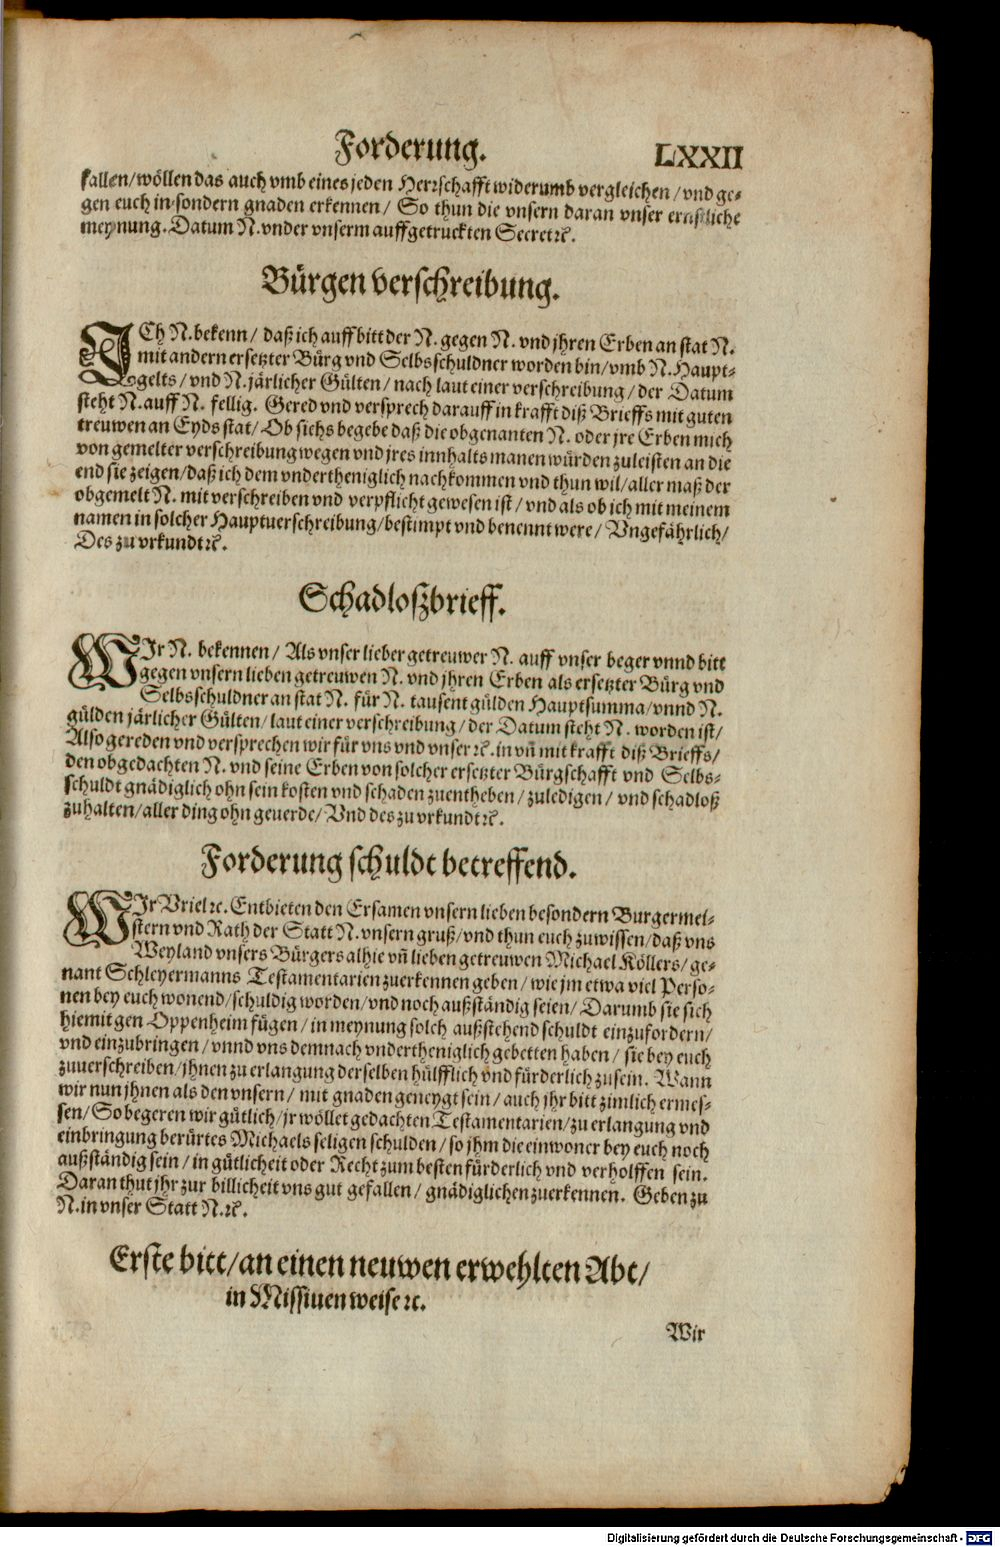 Forderung. LXXII
fallen/wöllen das auch vmb eines jeden Herrschafft widerumb vergleichen/vnd ge-
gen euch in sondern gnaden erkennen/ So thun die vnsern daran vnser ernstliche
meynung. Datum N. vnder vnserm auffgetruckten Secret ꝛc.
Bürgen verschreibung.
ICh N. bekenn/ daß ich auff bitt der N. gegen N. vnd jhren Erben an stat N.
mit andern ersetzter Bürg vnd Selbsschuldner worden bin/vmb N. Haupt-
gelts/vnd N. järlicher Gülten/nach laut einer verschreibung/der Datum
steht N. auff N. fellig. Gered vnd versprech darauff in krafft diß Brieffs mit guten
treuwen an Eyds stat/Ob sichs begebe daß die obgenanten N. oder jre Erben mich
von gemelter verschreibung wegen vnd jres innhalts manen würden zuleisten an die
end sie zeigen/daß ich dem vndertheniglich nachkommen vnd thun wil/aller maß der
obgemelt N. mit verschreiben vnd verpflicht gewesen ist/vnd als ob ich mit meinem
namen in solcher Hauptuerschreibung/bestimpt vnd benennt were/Vngefährlich/
Des zu vrkundt ꝛc.
Schadloßbrieff.
WIr N. bekennen/Als vnser lieber getreuwer N. auff vnser beger vnnd bitt
gegen vnsern lieben getreuwen N. vnd jhren Erben als ersetzter Bürg vnd
Selbsschuldner an stat N. für N. tausent gülden Hauptsumma/vnnd N.
gülden järlicher Gülten/laut einer verschreibung/der Datum steht N. worden ist/
Also gereden vnd versprechen wir für vns vnd vnser ꝛc. in vñ mit krafft diß Brieffs/
den obgedachten N. vnd seine Erben von solcher ersetzter Bürgschafft vnd Selbs-
schuldt gnädiglich ohn sein kosten vnd schaden zuentheben/zuledigen/vnd schadloß
zuhalten/aller ding ohn geuerde/Vnd des zu vrkundt ꝛc.
Forderung schuldt betreffend.
WIr Vriel ꝛc. Entbieten den Ersamen vnsern lieben besondern Burgermei-
stern vnd Rath der Statt N. vnsern gruß/vnd thun euch zuwissen/daß vns
Weyland vnsers Bürgers alhie vñ lieben getreuwen Michael Köllers/ge-
nant Schleyermanns Testamentarien zuerkennen geben/wie jm etwa viel Perso-
nen bey euch wonend/schuldig worden/vnd noch außständig seien/Darumb sie sich
hiemit gen Oppenheim fügen/in meynung solch außstehend schuldt einzufordern/
vnd einzubringen/vnnd vns demnach vndertheniglich gebetten haben/sie bey euch
zuuerschreiben/jhnen zu erlangung derselben hülfflich vnd fürderlich zusein. Wann
wir nun jhnen als den vnsern/mit gnaden geneygt sein/auch jhr bitt zimlich ermes-
sen/So begeren wir gütlich/jr wöllet gedachten Testamentarien/zu erlangung vnd
einbringung berürtes Michaels seligen schulden/so jhm die einwoner bey euch noch
außständig sein/in gütlicheit oder Recht zum besten fürderlich vnd verholffen sein.
Daran thut jhr zur billicheit vns gut gefallen/gnädiglichen zuerkennen. Geben zu
N. in vnser Statt N. ꝛc.
Erste bitt/an einen neuwen erwehlten Abt/
in Missiuen weise ꝛc.
Wir
Digitalisierung gefördert durch die Deutsche Forschungsgemeinschaft - DFG